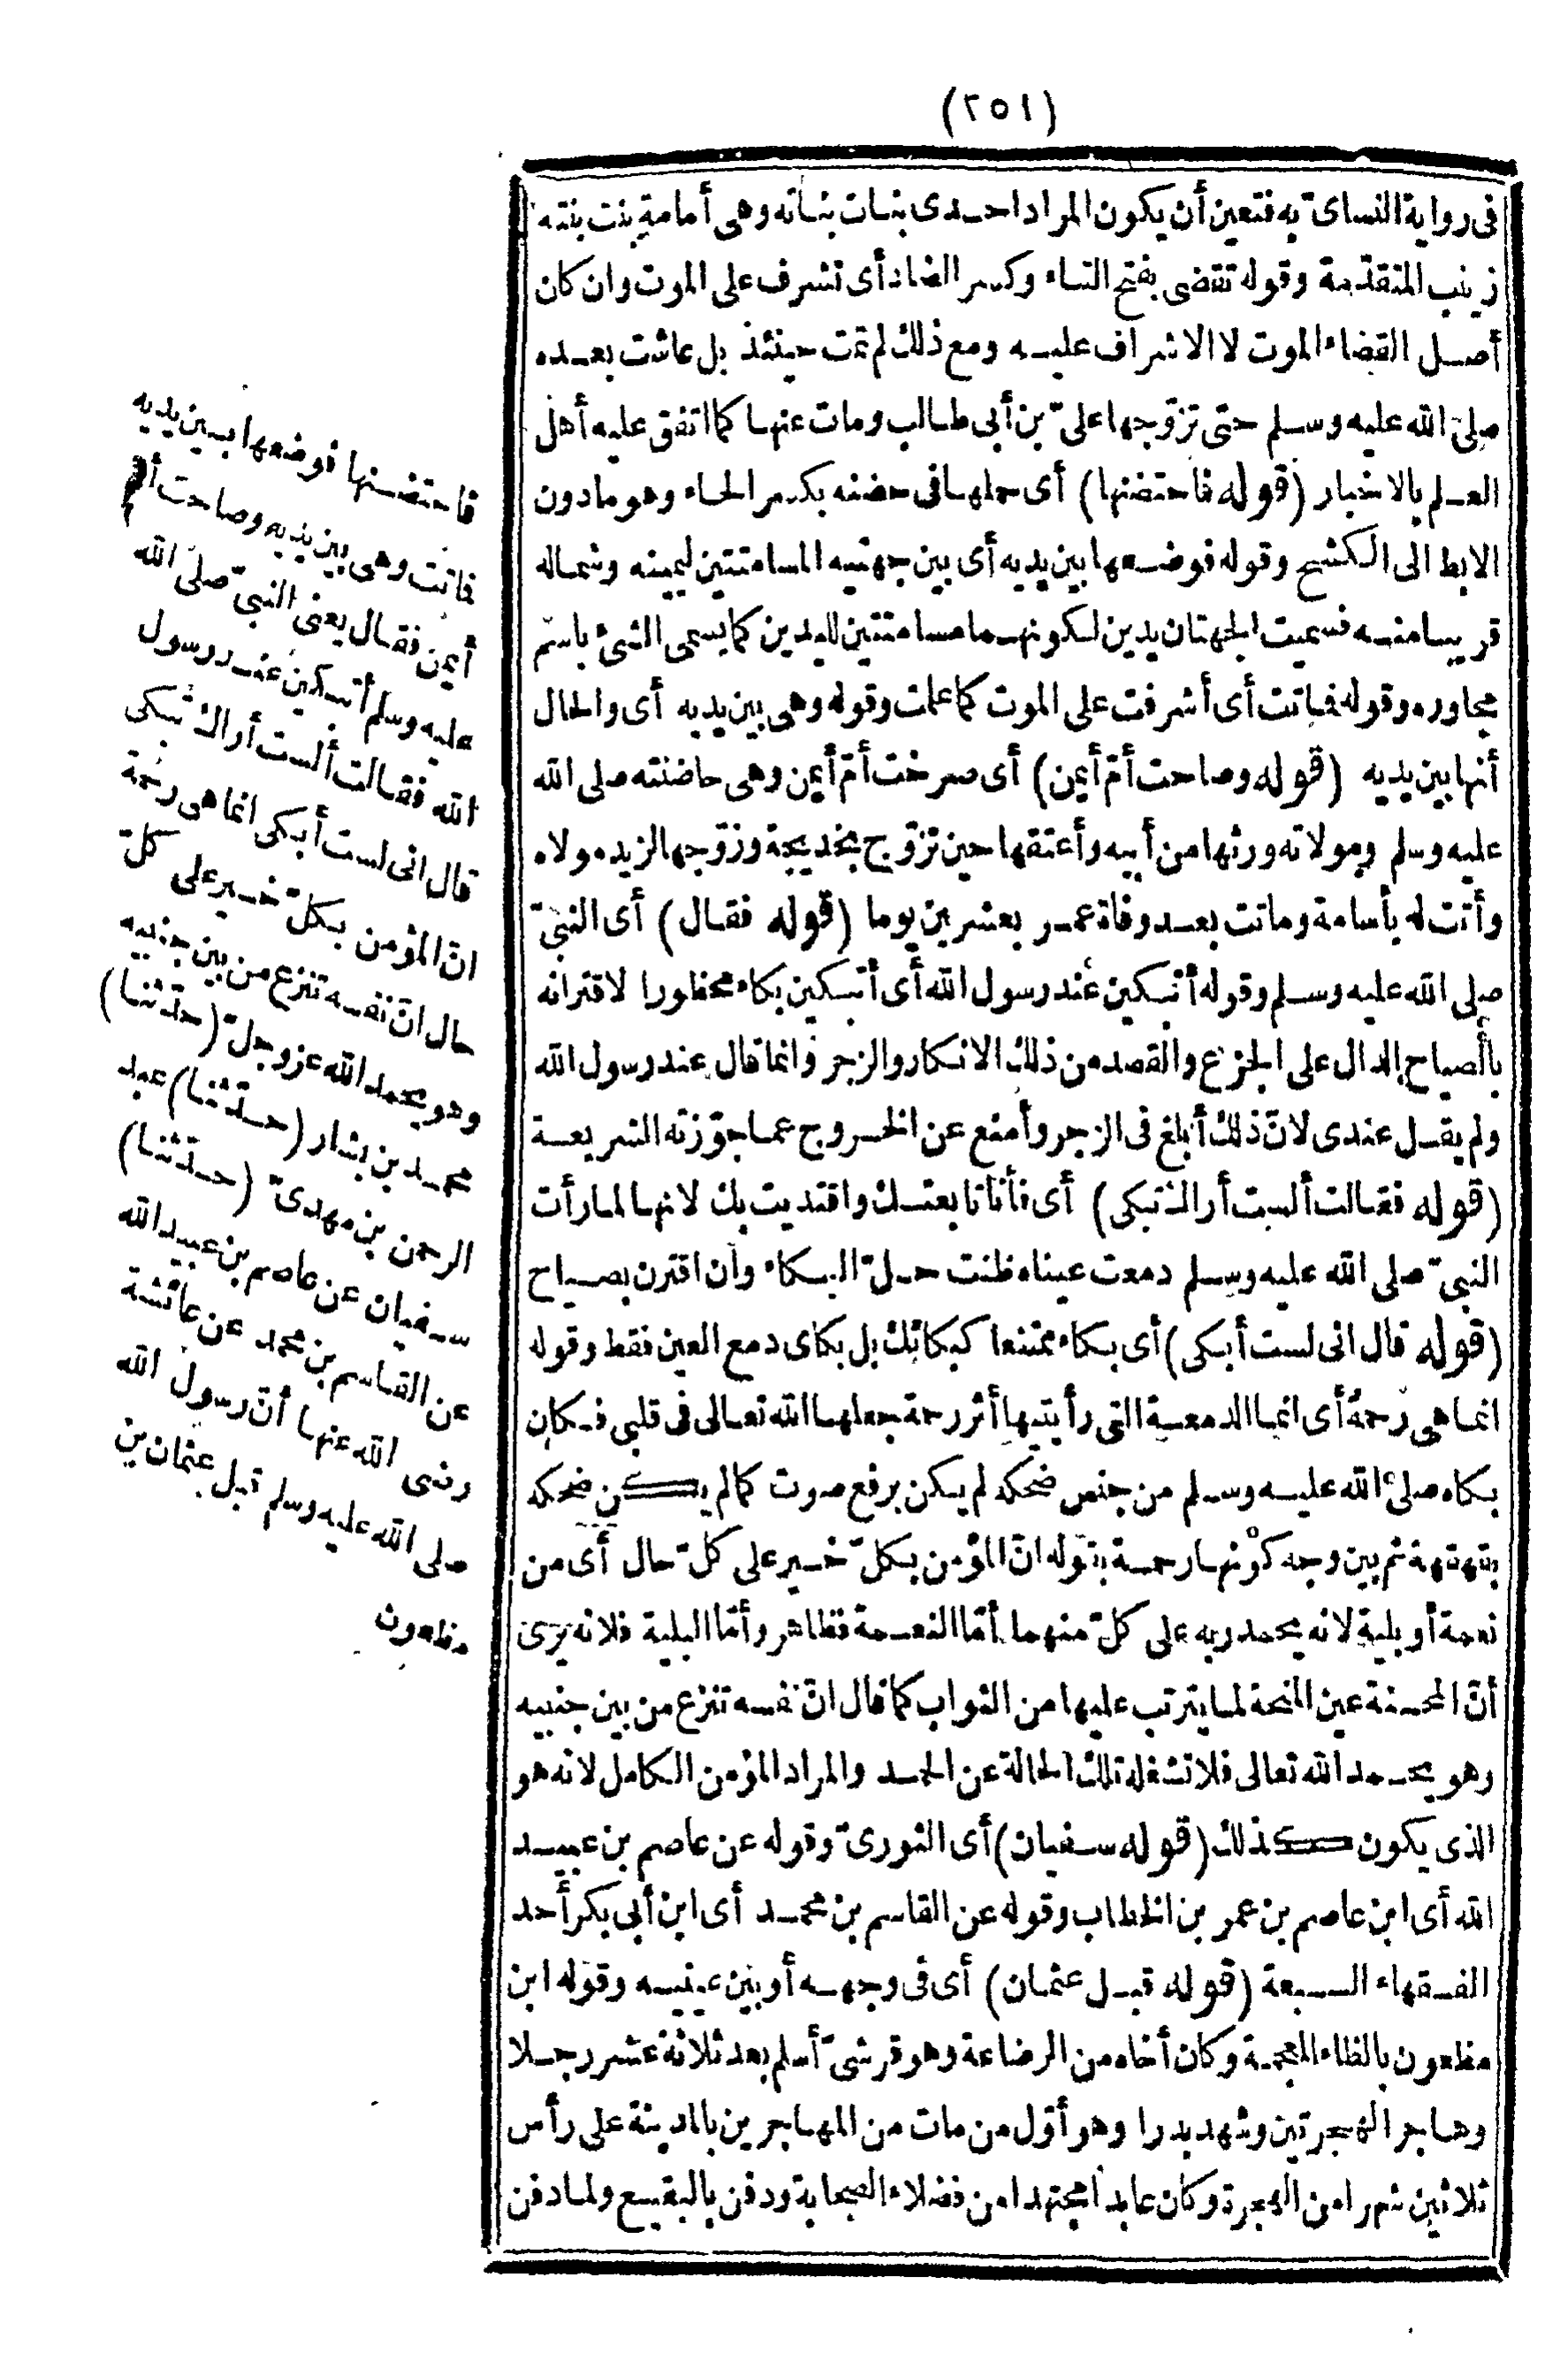 (٢٥١)
فى رواية النساى به فتعين أن يكون المراد احدى بنات بناته وهى أمامة بنت بنته
زينب المتقدّمة وقوله تقضى بفتح التاء وكسر الضاد أى تشرف على الموت وان كان
أصل القضاء الموت لا الاشراف عليه ومع ذلك لم تمت حينئذ بل عاشت بعده
صلى الله عليه وسلم حتى تزوّجها علىّ بن أبى طالب ومات عنها كما اتفق عليه أهل
العلم بالاخبار (قوله فاحتضنها) أى حملها فى حضنه بكسر الحاء وهو مادون
الابط الى الكشح وقوله فوضعها بين يديه أى بين جهتيه المسامتتين ليمينه وشماله
قريبا منه فسميت الجهتان يدين لكونهما مسامتتين لليدين كما يسمى الشئ باسم
مجاوره وقوله فماتت أى أشرفت على الموت كما علمت وقوله وهى بين يديه أى والحال
أنها بين يديه (قوله وصاحت أمّ أيمن) أى صرخت أمّ أيمن وهى حاضنته صلى الله
عليه وسلم ومولاته ورثها من أبيه وأعتقها حين تزوّج بخديجة وزوّجها لزيد مولاه
وأتت له بأسامة وماتت بعد وفاة عمر بعشرين يوما (قوله فقال) أى النبىّ
صلى الله عليه وسلم وقوله أتبكين عند رسول الله أى أتبكين بكاء محظورا لاقترانه
بالصياح الدال على الجزع والقصد من ذلك الانكار والزجر وانما قال عند رسول الله
ولم يقل عندى لانّ ذلك أبلغ فى الزجر وأمنع عن الخروج عما جوّزته الشريعة
(قوله فقالت ألست أراك تبكى) أى فأنا تابعتك واقتديت بك لانها لما رأت
النبىّ صلى الله عليه وسلم دمعت عيناه ظنت حلّ البكاء وان اقترن بصياح
(قوله قال انى لست أبكى) أى بكاء ممتنعا كبكائك بل بكاى دمع العين فقط وقوله
انما هى رحمة أى انما الدمعة التى رأيتيها أثر رحمة جعلها الله تعالى فى قلبى فكان
بكاه صلى الله عليه وسلم من جنس ضحكه لم يكن برفع صوت كما لم يكن ضحكه
بقهقهة ثم بين وجه كونها رحمة بقوله انّ المؤمن بكلّ خير على كلّ حال أى من
نعمة أو بلية لانه يحمد ربه على كلّ منهما أمّا النعمة فظاهر وأمّا البلية فلانه يرى
أنّ المحنة عين المنحة لما يترتب عليها من الثواب كما قال انّ نفسه تنزع من بين جنبيه
وهو يحمد الله تعالى فلا تشغله تلك الحالة عن الحمد والمراد المؤمن الكامل لانه هو
الذى يكون كذلك (قوله سفيان) أى الثورىّ وقوله عن عاصم بن عبيد
الله أى ابن عاصم بن عمر بن الخطاب وقوله عن القاسم بن محمد أى ابن أبى بكر أحد
الفقهاء السبعة (قوله قبل عثمان) أى فى وجهه أو بين عينيه وقوله ابن
مظعون بالظاء المعجمة وكان أخاه من الرضاعة وهو قرشىّ أسلم بعد ثلاثة عشر رجلا
وهاجر الهجرتين وشهد بدرا وهو أوّل من مات من المهاجرين بالمدينة على رأس
ثلاثين شهرا من الهجرة وكان عابدا مجتهدا من فضلاء الصحابة ودفن بالبقيع ولما دفن
فاحتضنها فوضعها بين يديه
فماتت وهى بين يديه وصاحت أم
أيمن فقال يعنى النبىّ صلى الله
عليه وسلم أتبكين عند رسول
الله فقالت ألست أراك تبكى
قال انى لست أبكى انما هى رحمة
انّ المؤمن بكلّ خير على كلّ
حال انّ نفسه تنزع من بين جنبيه
وهو يحمد الله عز وجلّ (حدّثنا)
محمد بن بشار (حدّثنا) عبد
الرحمن بن مهدىّ (حدّثنا)
سفيان عن عاصم بن عبيد الله
عن القاسم بن محمد عن عائشة
رضى الله عنها أنّ رسول الله
صلى الله عليه وسلم قبل عثمان بن
مظعون